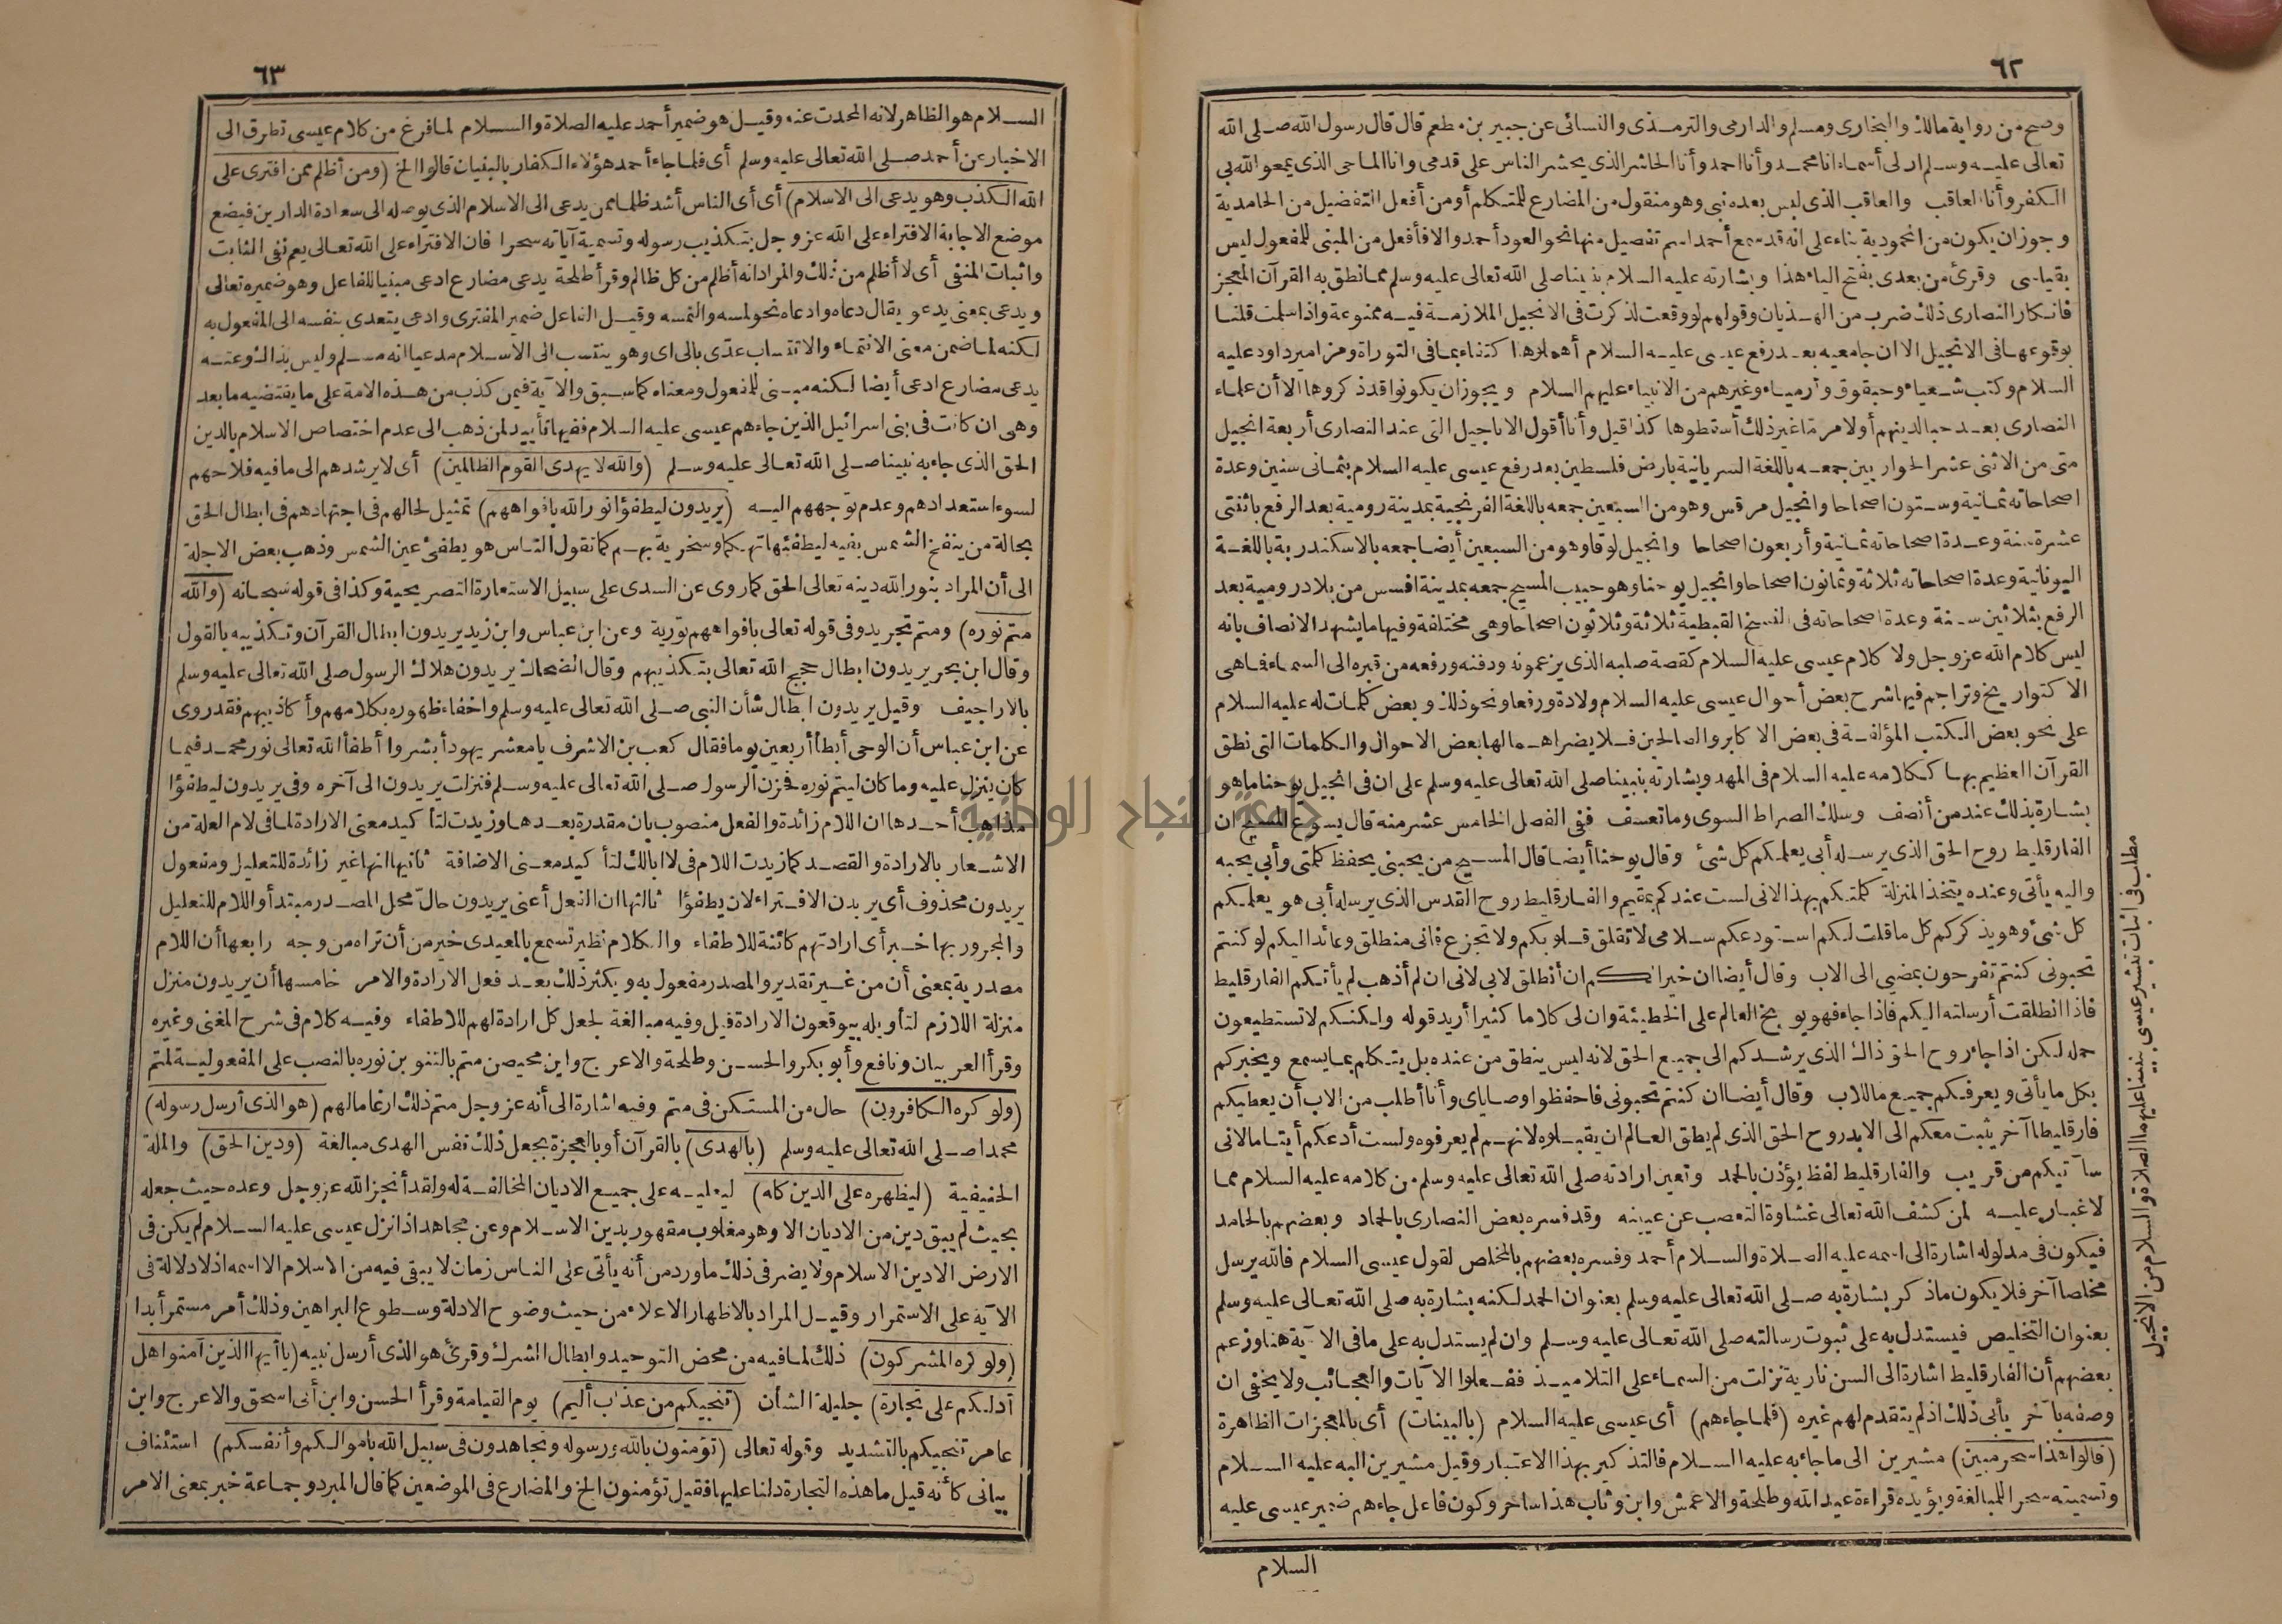 ٦٢
وصح من رواية مالك والبخارى ومسلم والدارمى والترمذى والنسائى عن جبير بن مطعم قال قال رسول الله صلى الله
تعالى عليه وسلم ان لى أسماء انا محمد وأنا احمد وأنا الحاشر الذى يحشر الناس على قدمى وانا الماحى الذى يمحو الله بى
الكفر وأنا العاقب والعاقب الذى ليس بعده نبى وهو منقول من المضارع للمتكلم أو من أفعل التفضيل من الحامدية
وجوز ان يكون من المحمودية بناء على انه قد سمع أحمد اسم تفضيل منها نحو العود أحمد والا فأفعل من المبنى للمفعول ليس
بقياسى وقرئ من بعدى بفتح الياء هذا وبشارته عليه السلام بنبينا صلى الله تعالى عليه وسلم مما نطق به القرآن المعجز
فانكار النصارى ذلك ضرب من الهذيان وقولهم لو وقعت لذكرت فى الانجيل الملازمة فيه ممنوعة واذا سلمت قلنا
بوقوعها فى الانجيل الا ان جامعيه بعد رفع عيسى عليه السلام أهملوها اكتفاء بما فى التوراة ومزامير داود عليه
السلام وكتب شعياء وحبقوق وأرمياء وغيرهم من الانبياء عليهم السلام ويجوز ان يكونوا قد ذكروها الا أن علماء
النصارى بعد حبا لدينهم أو لامر ما غير ذلك أسقطوها كذا قيل وأنا أقول الاناجيل التى عند النصارى أربعة انجيل
متى من الاثنى عشر الحواريين جمعه باللغة السريانية بارض فلسطين بعد رفع عيسى عليه السلام بثمانى سنين وعدة
اصحاحاته ثمانية وستون اصحاحا وانجيل مرقس وهو من السبعين جمعه باللغة الفرنجية بمدينة رومية بعد الرفع باثنتى
عشرة سنة وعدة اصحاحاته ثمانية وأربعون اصحاحا وانجيل لوقا وهو من السبعين أيضا جمعه بالاسكندرية باللغة
اليونانية وعدة اصحاحاته ثلاثة وثمانون اصحاحا وانجيل يوحنا وهو حبيب المسيح جمعه بمدينة افسس من بلاد رومية بعد
الرفع بثلاثين سنة وعدة اصحاحاته فى النسخ القبطية ثلاثة وثلاثون اصحاحا وهى مختلفة وفيها ما يشهد الانصاف بانه
ليس كلام الله عز وجل ولا كلام عيسى عليه السلام كقصة صلبه الذى يزعمونه ودفنه ورفعه من قبره الى السماء فما هى
الا كتواريخ وتراجم فيها شرح بعض أحوال عيسى عليه السلام ولادة ورفعا ونحو ذلك وبعض كلمات له عليه السلام
على نحو بعض الكتب المؤلفة فى بعض الاكابر والصالحين فلا يضر اهمالها بعض الاحوال والكلمات التى نطق
القرآن العظيم بها ككلامه عليه السلام فى المهد وبشارته بنبينا صلى الله تعالى عليه وسلم على ان فى انجيل يوحنا ما هو
بشارة بذلك عند من أنصف وسلك الصراط السوى وما تعسف ففى الفصل الخامس عشر منه قال يسوع المسيح ان
الفارقليط روح الحق الذى يرسله أبى يعلمكم كل شئ وقال يوحنا أيضا قال المسيح من يحبنى يحفظ كلمتى وأبى يحبه
واليه يأتى وعنده يتخذ المنزلة كلمتكم بهذا لانى لست عندكم بمقيم والفارقليط روح القدس الذى يرسله أبى هو يعلمكم
كل شئ وهو يذكركم كل ما قلت لكم استودعكم سلامى لا تقلق قلوبكم ولا تجزع فانى منطلق وعائد اليكم لو كنتم
تحبونى كنتم تفرحون بمضيى الى الاب وقال أيضا ان خيرا لكم ان أنطلق لابى لانى ان لم أذهب لم يأتكم الفارقليط
فاذا انطلقت أرسلته اليكم فاذا جاء فهو يوبخ العالم على الخطيئة وان لى كلاما كثيرا أريد قوله ولكنكم لا تستطيعون
حمله لكن اذا جاء روح الحق ذاك الذى يرشدكم الى جميع الحق لانه ليس ينطق من عنده بل يتكلم بما يسمع ويخبركم
بكل ما يأتى ويعرفكم جميع ما للاب وقال أيضا ان كنتم تحبونى فاحفظوا وصاياى وأنا أطلب من الاب أن يعطيكم
فارقليطا آخر يثبت معكم الى الابد روح الحق الذى لم يطق العالم ان يقبلوه لانهم لم يعرفوه ولست أدعكم أيتاما لانى
سآتيكم من قريب والفارقليط لفظ يؤذن بالحمد وتعين ارادته صلى الله تعالى عليه وسلم من كلامه عليه السلام مما
لا غبار عليه لمن كشف الله تعالى غشاوة التعصب عن عينيه وقد فسره بعض النصارى بالحماد وبعضهم بالحامد
فيكون فى مدلوله اشارة الى اسمه عليه الصلاة والسلام أحمد وفسره بعضهم بالمخلص لقول عيسى السلام فالله يرسل
مخلصا آخر فلا يكون ما ذكر بشارة به صلى الله تعالى عليه وسلم بعنوان الحمد لكنه بشارة به صلى الله تعالى عليه وسلم
بعنوان التخليص فيستدل به على ثبوت رسالته صلى الله تعالى عليه وسلم وان لم يستدل به على ما فى الآية هنا وزعم
بعضهم أن الفارقليط اشارة الى السن نارية نزلت من السماء على التلاميذ ففعلوا الآيات والعجائب ولا يخفى ان
وصفه بآخر يأبى ذلك اذ لم يتقدم لهم غيره (فلما جاءهم) أى عيسى عليه السلام (بالبينات) أى بالمعجزات الظاهرة
(قالوا هذا سحر مبين) مشيرين الى ما جاء به عليه السلام فالتذكير بهذا الاعتبار وقيل مشيرين اليه عليه السلام
وتسميته سحرا للمبالغة ويؤيده قراءة عبد الله وطلحة والاعمش وابن وثاب هذا ساحر وكون فاعل جاءهم ضمير عيسى عليه
السلام
مطلب فى اثبات تبشير عيسى بنبينا عليهما الصلاة والسلام من الانجيل
٦٣
السلام هو الظاهر لانه المحدث عنه وقيل هو ضمير أحمد عليه الصلاة والسلام لما فرغ من كلام عيسى تطرق الى
الاخبار عن أحمد صلى الله تعالى عليه وسلم أى فلما جاء أحمد هؤلاء الكفار بالبينات قالوا الخ (ومن أظلم ممن افترى على
الله الكذب وهو يدعى الى الاسلام) أى أى الناس أشد ظلما ممن يدعى الى الاسلام الذى يوصله الى سعادة الدارين فيضع
موضع الاجابة الافتراء على الله عز وجل بتكذيب رسوله وتسمية آياته سحرا فان الافتراء على الله تعالى يعم نفى الثابت
واثبات المنفى أى لا أظلم من ذلك والمراد انه أظلم من كل ظالم وقرأ طلحة يدعى مضارع ادعى مبنيا للفاعل وهو ضميره تعالى
ويدعى بمعنى يدعو يقال دعاه وادعاه نحو لمسه والتمسه وقيل الفاعل ضمير المفترى وادعى يتعدى بنفسه الى المفعول به
لكنه لما ضمن معنى الانتماء والانتساب عدى بالى أى وهو ينتسب الى الاسلام مدعيا انه مسلم وليس بذاك وعنه
يدعى مضارع ادعى أيضا لكنه مبنى للمفعول ومعناه كما سبق والآية فيمن كذب من هذه الامة على ما يقتضيه ما بعد
وهى ان كانت فى بنى اسرائيل الذين جاءهم عيسى عليه السلام ففيها تأييد لمن ذهب الى عدم اختصاص الاسلام بالدين
الحق الذى جاء به نبينا صلى الله تعالى عليه وسلم (والله لا يهدى القوم الظالمين) أى لا يرشدهم الى ما فيه فلاحهم
لسوء استعدادهم وعدم توجههم اليه (يريدون ليطفؤا نور الله بافواههم) تمثيل لحالهم فى اجتهادهم فى ابطال الحق
بحالة من ينفخ الشمس بفيه ليطفئها تهكما وسخرية بهم كما تقول الناس هو يطفئ عين الشمس وذهب بعض الاجلة
الى أن المراد بنور الله دينه تعالى الحق كما روى عن السدى على سبيل الاستعارة التصريحية وكذا فى قوله سبحانه (والله
متم نوره) ومتم تجريد وفى قوله تعالى بافواههم تورية وعن ابن عباس وابن زيد يريدون ابطال القرآن وتكذيبه بالقول
وقال ابن بحر يريدون ابطال حجج الله تعالى بتكذيبهم وقال الضحاك يريدون هلاك الرسول صلى الله تعالى عليه وسلم
بالاراجيف وقيل يريدون ابطال شأن النبى صلى الله تعالى عليه وسلم واخفاء ظهوره بكلامهم وأكاذيبهم فقد روى
عن ابن عباس أن الوحى أبطأ أربعين يوما فقال كعب بن الاشرف يا معشر يهود أبشروا أطفأ الله تعالى نور محمد فيما
كان ينزل عليه وما كان ليتم نوره فحزن الرسول صلى الله تعالى عليه وسلم فنزلت يريدون الى آخره وفى يريدون ليطفؤا
مذاهب أحدها ان اللام زائدة والفعل منصوب بان مقدرة بعدها وزيدت لتأكيد معنى الارادة لما فى لام العلة من
الاشعار بالارادة والقصد كما زيدت اللام فى لا ابالك لتأكيد معنى الاضافة ثانيها انها غير زائدة للتعليل ومفعول
يريدون محذوف أى يريدون الافتراء لان يطفؤا ثالثها ان الفعل أعنى يريدون حال محل المصدر مبتدأ واللام للتعليل
والمجرور بها خبر أى ارادتهم كائنة للاطفاء والكلام نظير تسمع بالمعيدى خير من أن تراه من وجه رابعها أن اللام
مصدرية بمعنى أن من غير تقدير والمصدر مفعول به ويكثر ذلك بعد فعل الارادة والامر خامسها أن يريدون منزل
منزلة اللازم لتأويله بيوقعون الارادة قيل وفيه مبالغة لجعل كل ارادة لهم للاطفاء وفيه كلام فى شرح المغنى وغيره
وقرأ العربيان ونافع وأبو بكر والحسن وطلحة والاعرج وابن محيصن متم بالتنوين نوره بالنصب على المفعولية لمتم
(ولو كره الكافرون) حال من المستكن فى متم وفيه اشارة الى أنه عز وجل متم ذلك ارغاما لهم (هو الذى أرسل رسوله)
محمدا صلى الله تعالى عليه وسلم (بالهدى) بالقرآن أو بالمعجزة بجعل ذلك نفس الهدى مبالغة (ودين الحق) والملة
الحنيفية (ليظهره على الدين كله) ليعليه على جميع الاديان المخالفة له ولقد أنجز الله عز وجل وعده حيث جعله
بحيث لم يبق دين من الاديان الا وهو مغلوب مقهور بدين الاسلام وعن مجاهد اذا نزل عيسى عليه السلام لم يكن فى
الارض الا دين الاسلام ولا يضر فى ذلك ما ورد من أنه يأتى على الناس زمان لا يبقى فيه من الاسلام الا اسمه اذ لا دلالة فى
الآية على الاستمرار وقيل المراد بالاظهار الاعلاء من حيث وضوح الادلة وسطوع البراهين وذلك أمر مستمر أبدا
(ولو كره المشركون) ذلك لما فيه من محض التوحيد وابطال الشرك وقرئ هو الذى أرسل نبيه (يا أيها الذين آمنوا هل
أدلكم على تجارة) جليلة الشأن (تنجيكم من عذاب أليم) يوم القيامة وقرأ الحسن وابن أبى اسحق والاعرج وابن
عامر تنجيكم بالتشديد وقوله تعالى (تؤمنون بالله ورسوله وتجاهدون فى سبيل الله بأموالكم وأنفسكم) استئناف
بيانى كأنه قيل ما هذه التجارة دلنا عليها فقيل تؤمنون الخ والمضارع فى الموضعين كما قال المبرد وجماعة خبر بمعنى الامر
جامعة النجاح الوطنية